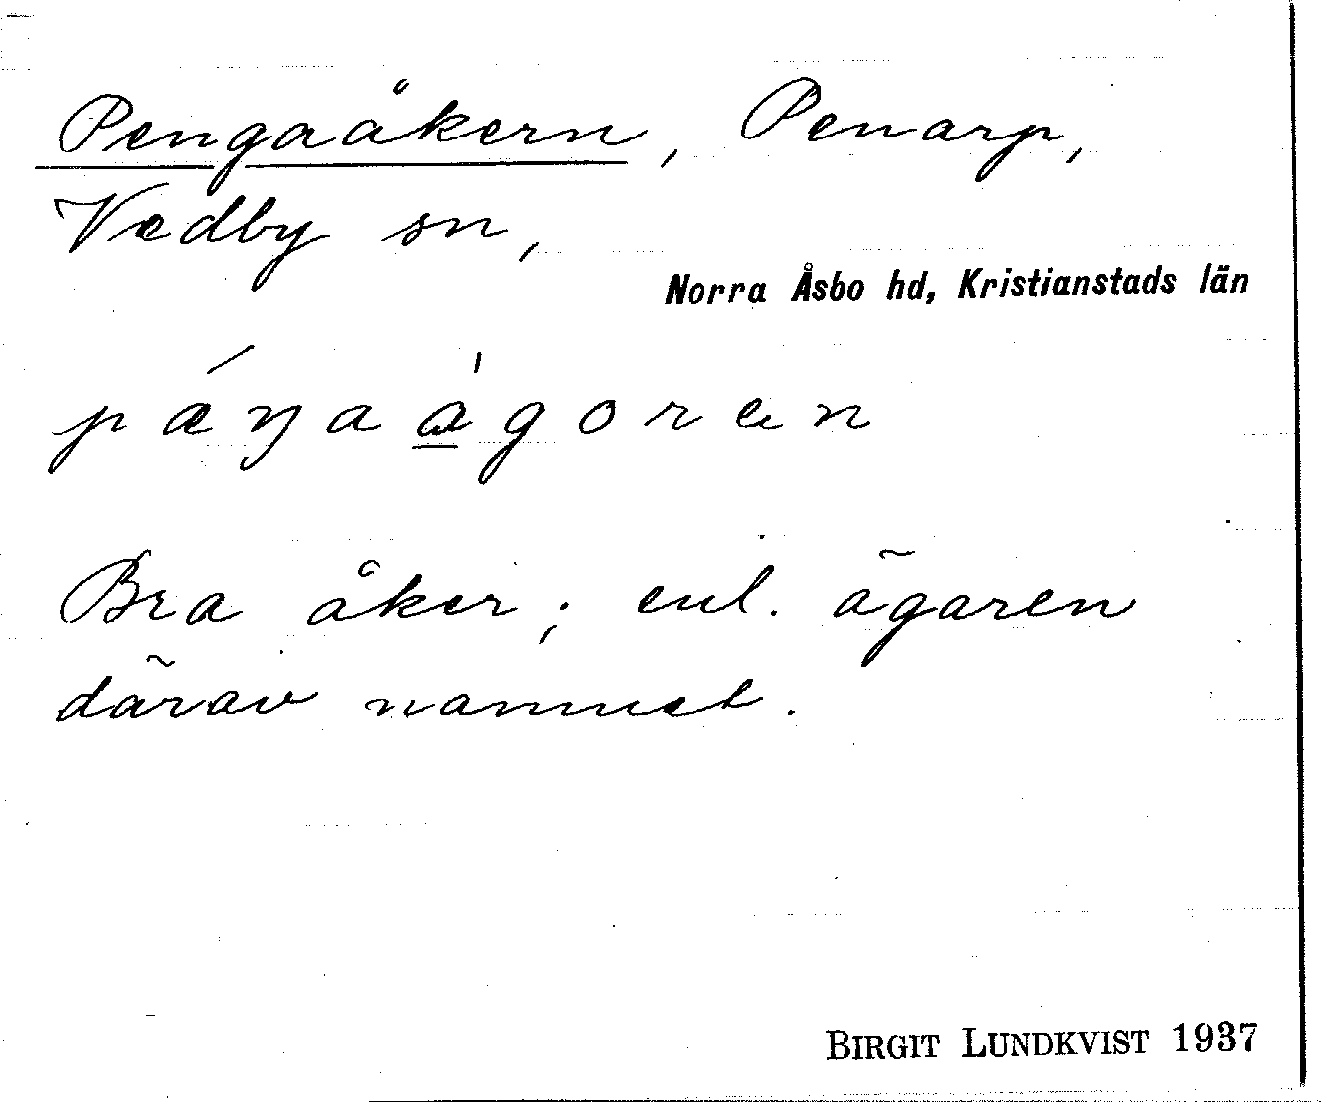 Pengaåkern, Penarp,
Vedby sn,
Norra Åsbo hd, Kristianstads län
pǽŋaàgoræn
Bra åker; enl. ägaren
därav namnet.
BIRGIT LUNDKVIST 1937